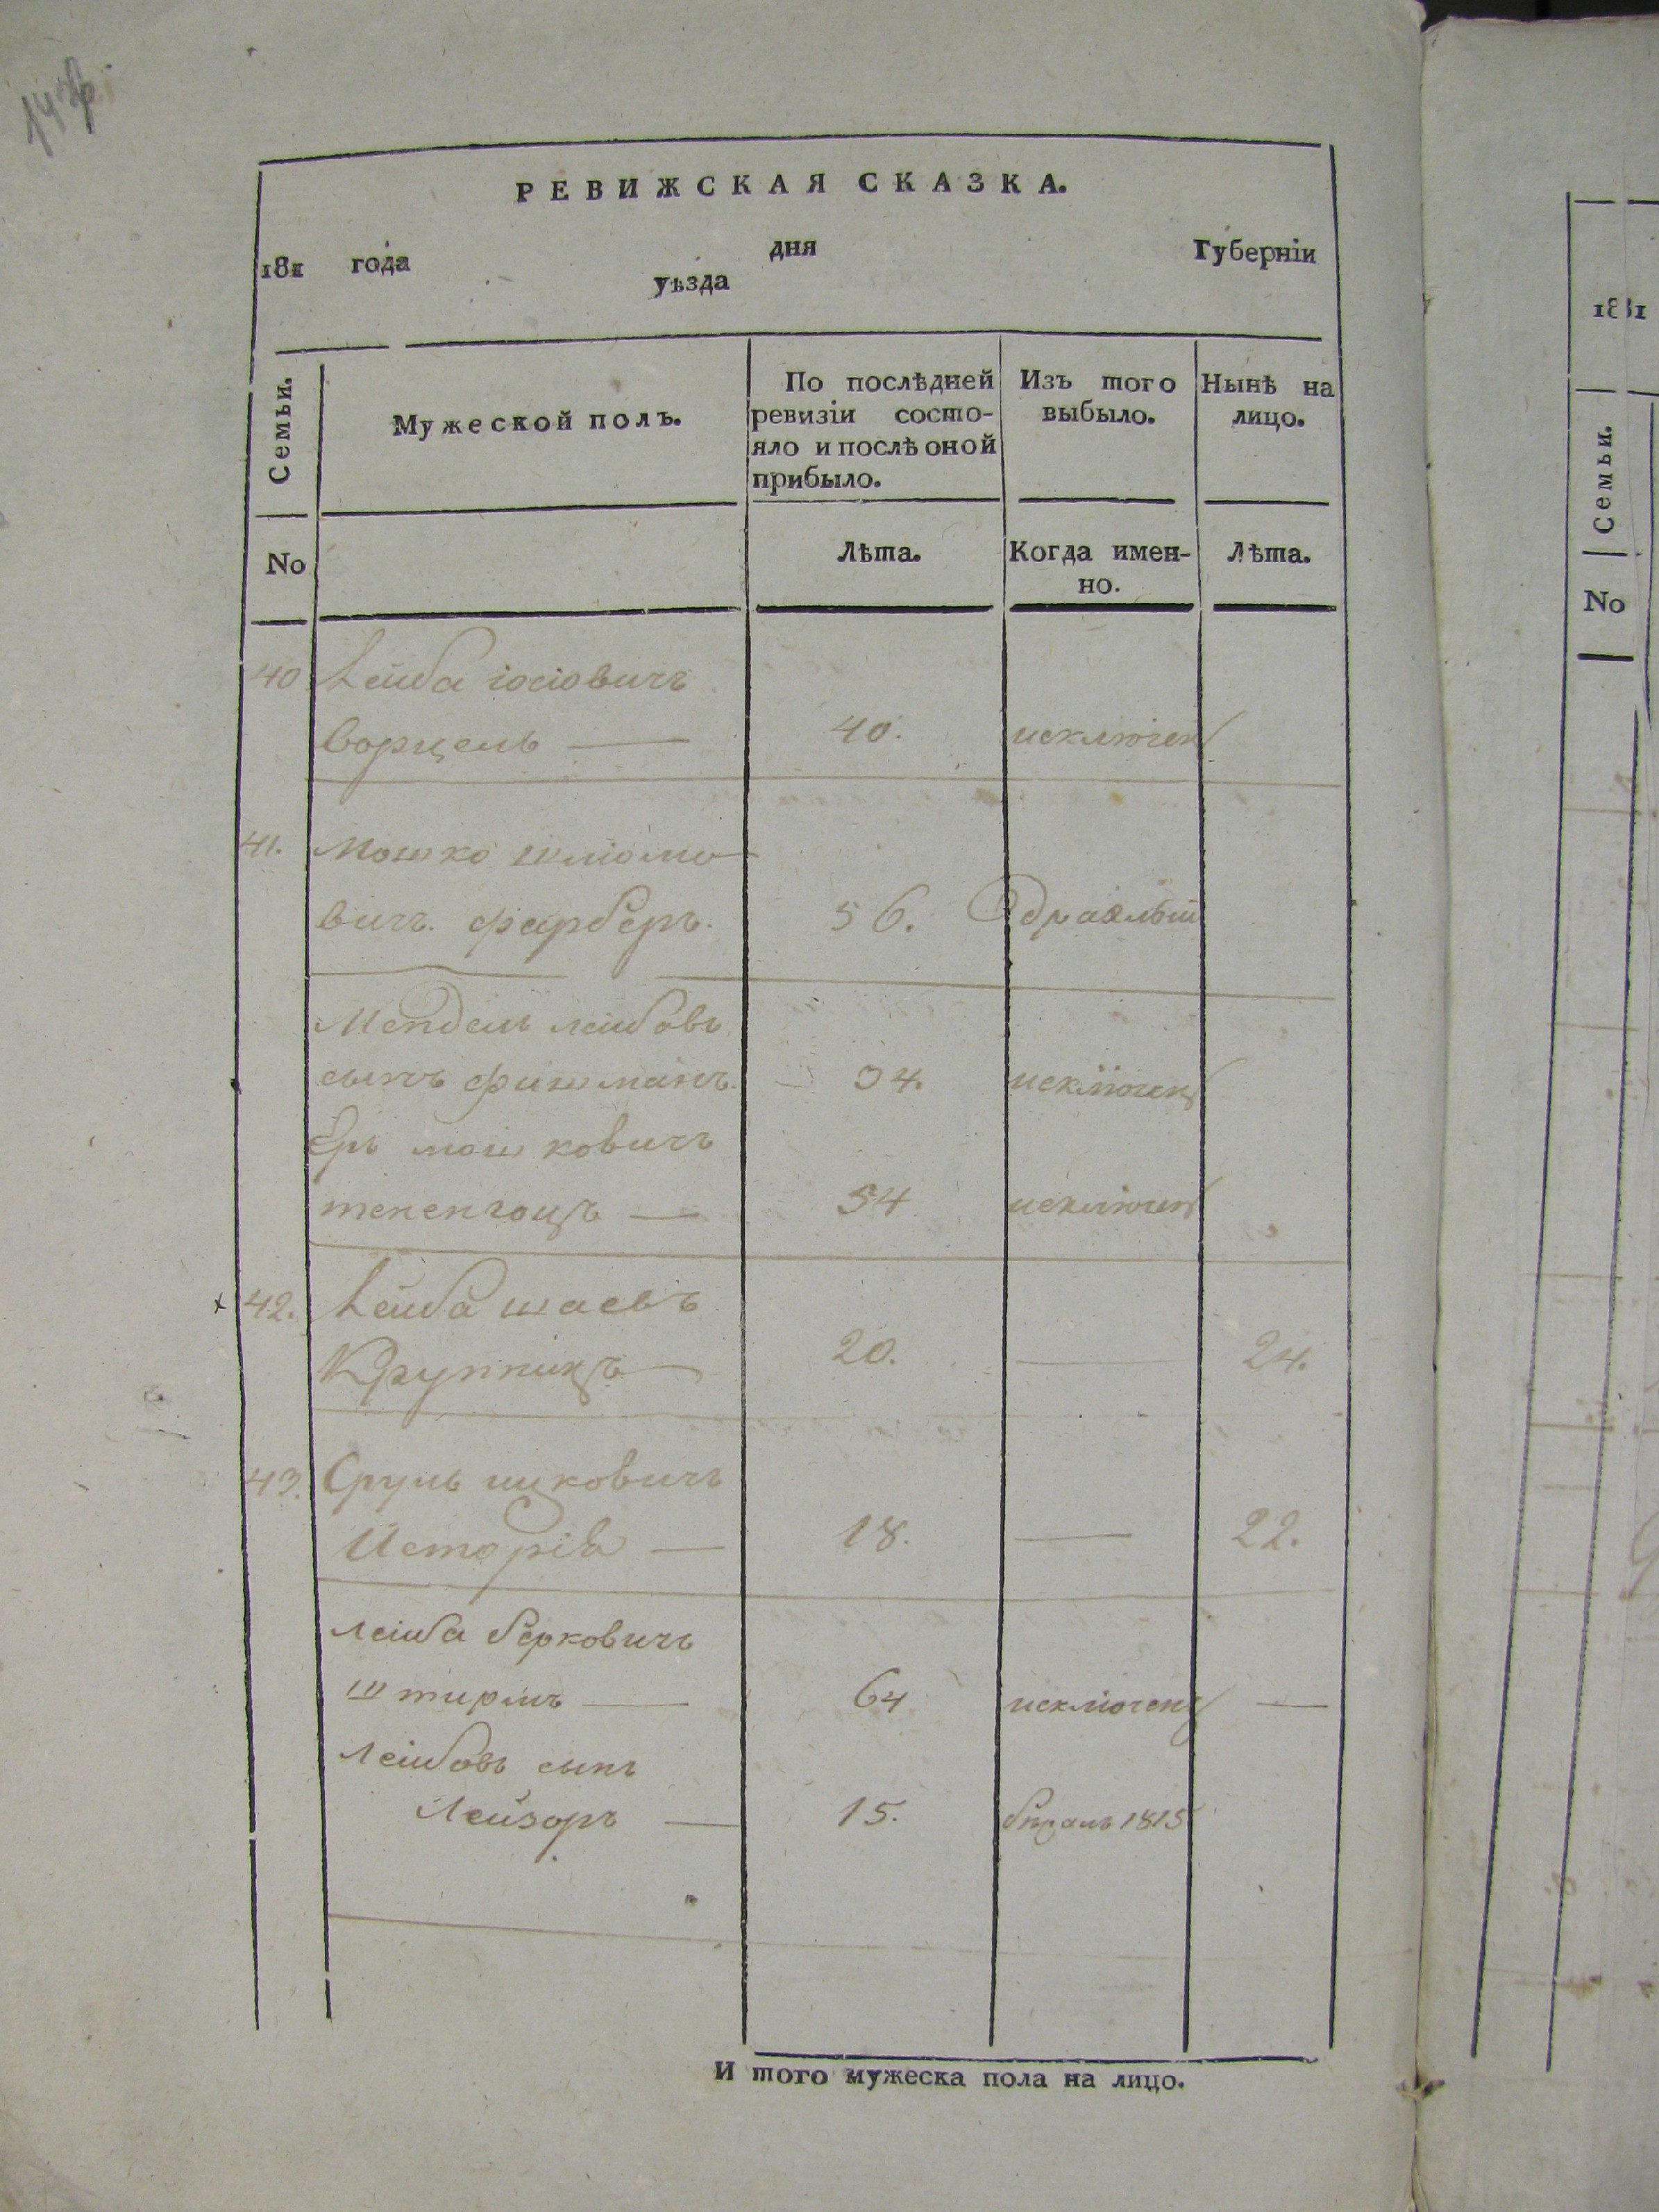 РЕВИЖСКАЯ СКАЗКА.
181 года дня Губерніи
уѣзда
Семьи. Мужеской полъ. По послѣдней ревизіи состо-яло и послѣ оной прибыло. Изъ того выбыло. Нынѣ на лицо.
No Лѣта. Когда имен-но. Лѣта.
40 Лейба іосіовичъ
Ворцель — 40. исключенъ
41. Мошко шліомо
вичъ фарберъ. 56.
Мендель лейбовъ
сынъ фишманъ. 34. исключенъ
мошковичъ
54 исключенъ
42. Лейба шаевъ
Крупникъ 20. — 24.
43. Сруль ицковичъ
Исторія — 18. — 22.
лейба берковичъ
штирнъ — 64 исключенъ —
Лейбовъ сынъ
Лейзоръ — 15. 1815
И того мужеска пола на лицо.
181
Семьи.
No